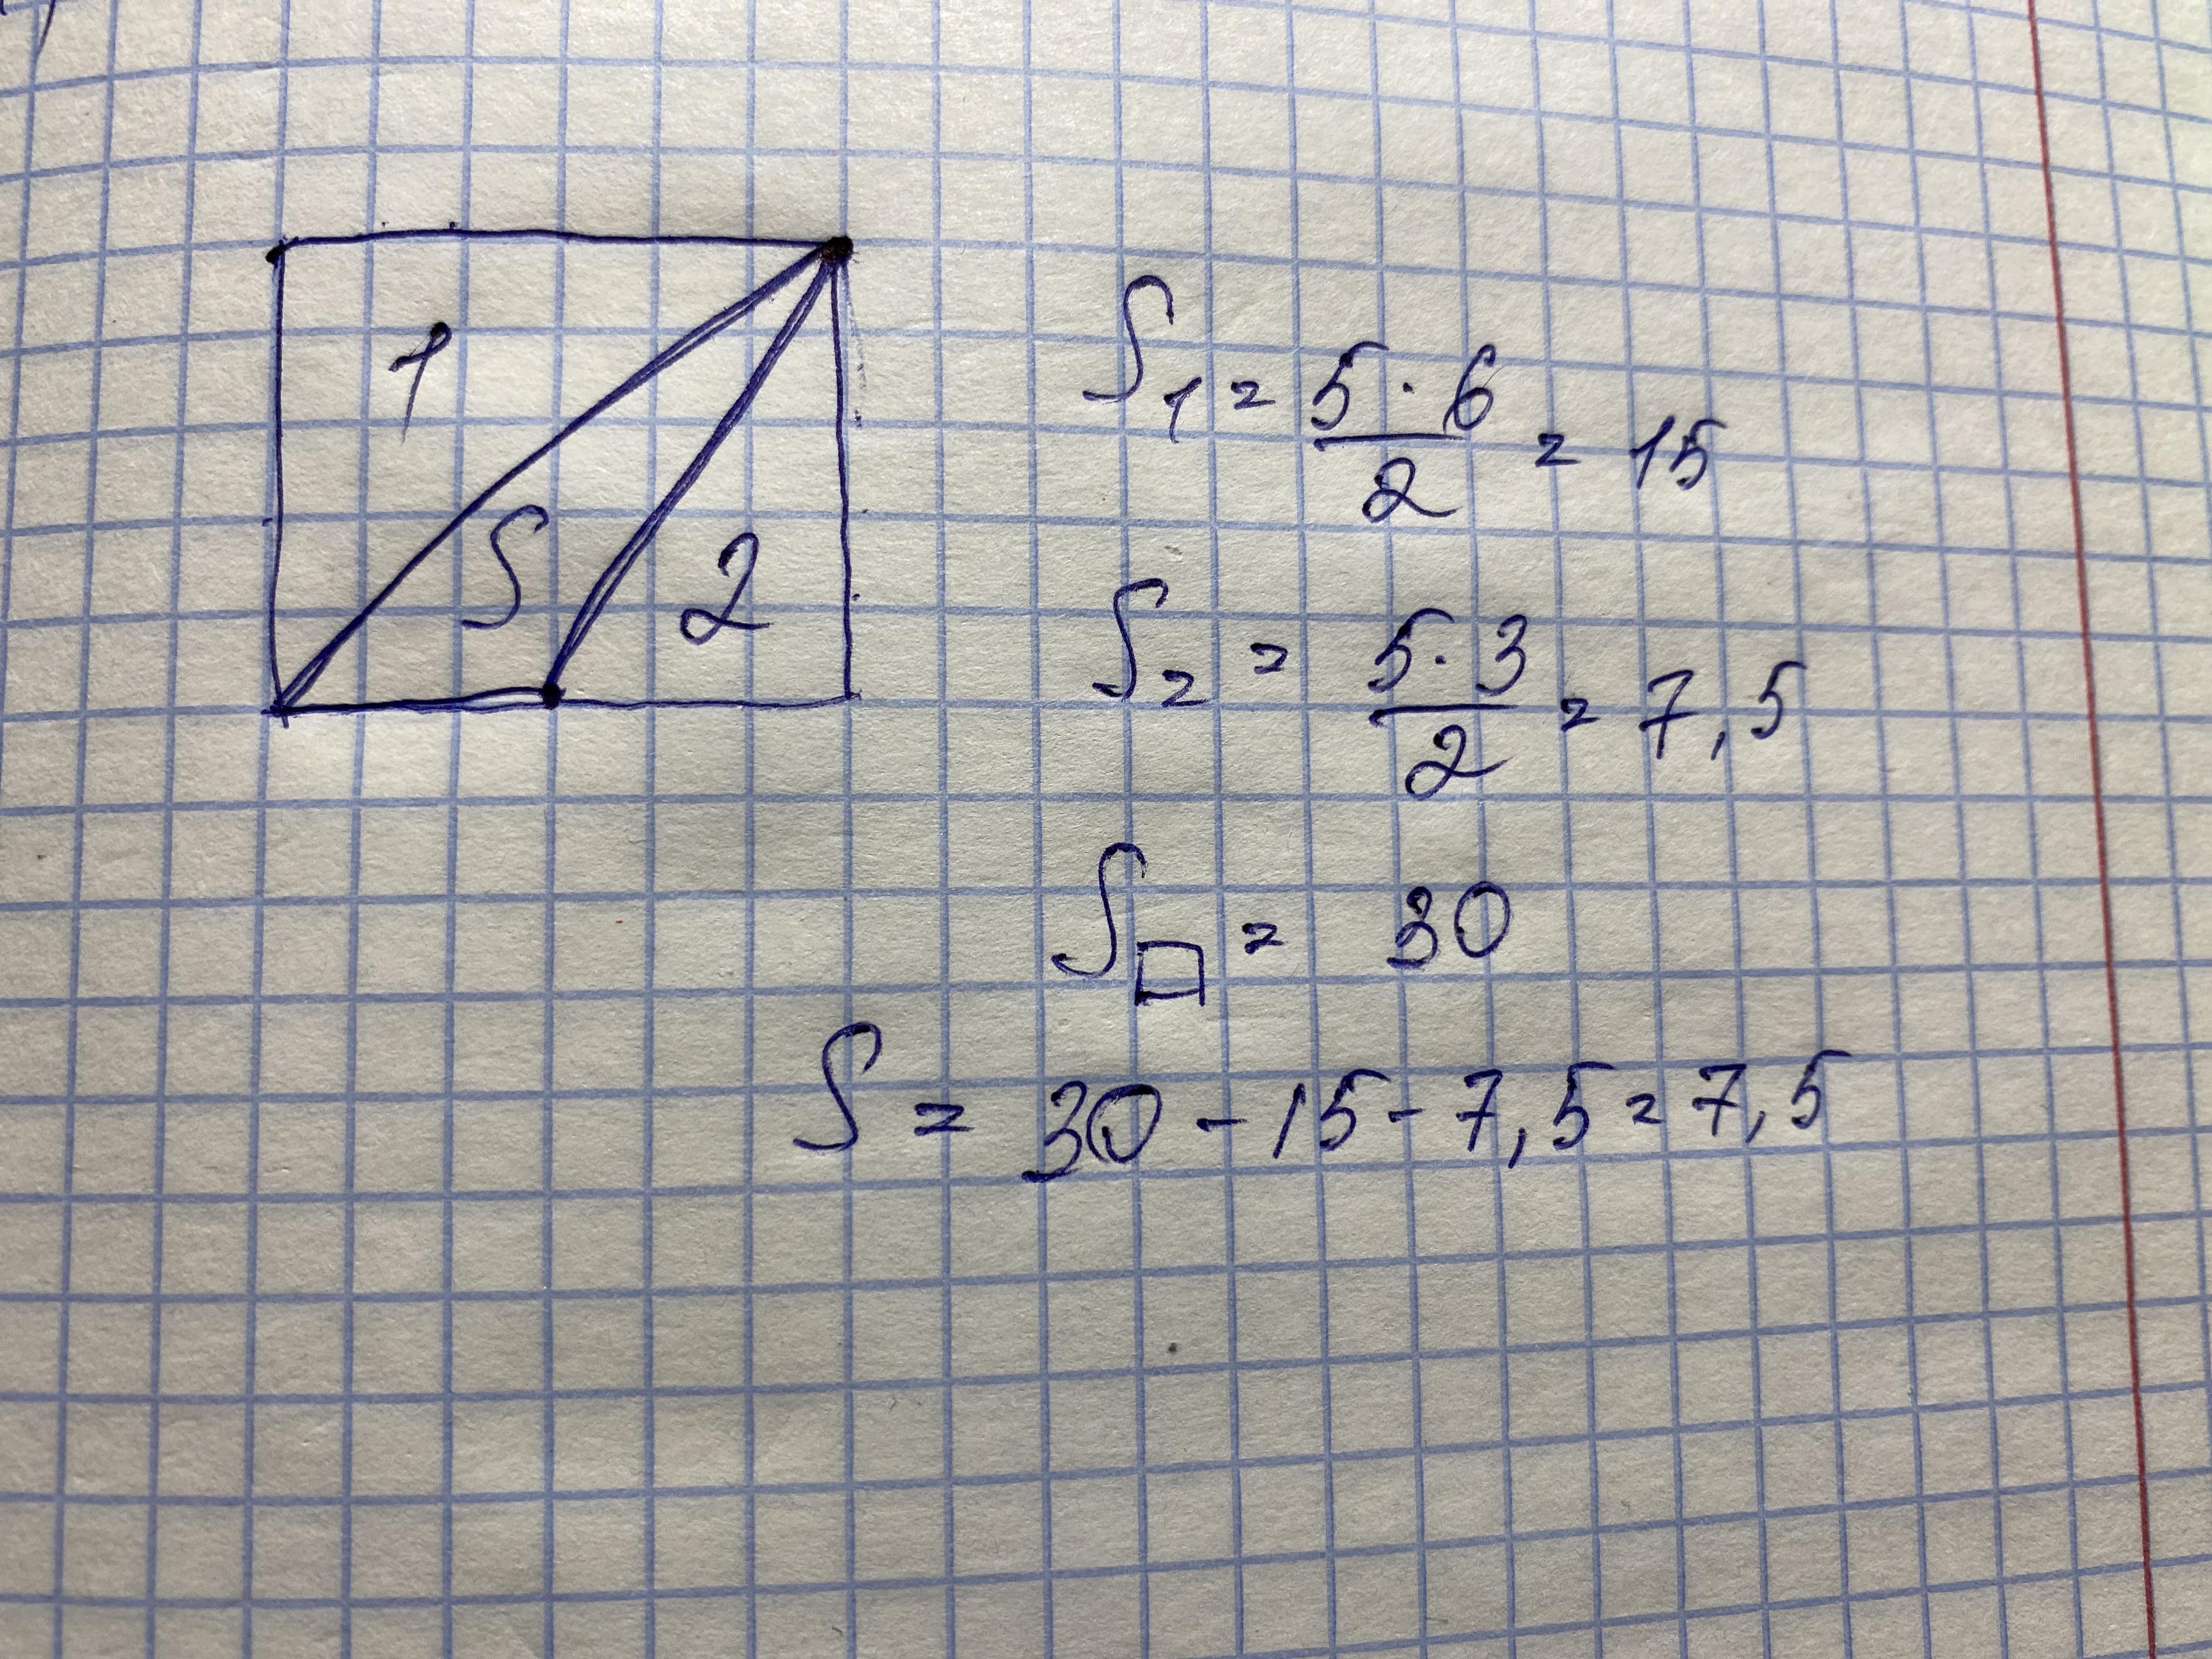 1
S 2
S₁ = 5 · 6 / 2 = 15
S₂ = 5 · 3 / 2 = 7,5
S□ = 30
S = 30 - 15 - 7,5 = 7,5